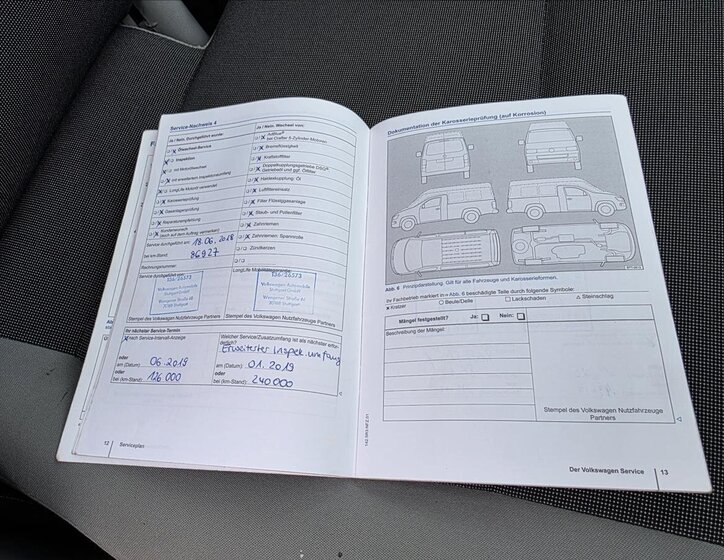 Service-Nachweis 4
Ja / Nein. Durchgeführt wurde:
Ölwechsel-Service
Inspektion
mit Motorölwechsel
mit erweitertem Inspektionsumfang
LongLife-Motoröl verwendet
Karosserieprüfung
Gasanlagenprüfung
Reparaturempfehlung
Kundenwunsch
(auch auf dem Auftrag vermerken)
Service durchgeführt am: 18.06.2018
bei km-Stand: 86927
Rechnungsnummer:
Service durchgeführt von:
136/26573
Volkswagen Automobile
Stuttgart GmbH
Stempel des Volkswagen Nutzfahrzeuge Partners
Ja / Nein. Wechsel von:
AdBlue®
bei Crafter 6-Zylinder-Motoren
Bremsflüssigkeit
Kraftstofffilter
Doppelkupplungsgetriebe DSG®
Getriebeöl und ggf. Ölfilter
Haldexkupplung: Öl
Luftfiltereinsatz
Filter Flüssiggasanlage
Staub- und Pollenfilter
Zahnriemen
Zahnriemen: Spannrolle
Zündkerzen
LongLife Mobilitätsgarantie:
136/26573
Volkswagen Automobile
Stuttgart GmbH
Stempel des Volkswagen Nutzfahrzeuge Partners
Ihr nächster Service-Termin
nach Service-Intervall-Anzeige
oder
am (Datum): 06.2019
oder
bei (km-Stand): 126 000
Welcher Service/Zusatzumfang ist als nächster erforderlich?
Erweiterter Inspek. umfang
am (Datum): 01.2019
oder
bei (km-Stand): 240 000
12
Serviceplan
Dokumentation der Karosserieprüfung (auf Korrosion)
Abb. 6 Prinzipdarstellung. Gilt für alle Fahrzeuge und Karosserieformen.
Ihr Fachbetrieb markiert in Abb. 6 beschädigte Teile durch folgende Symbole:
Kratzer
Beule/Delle
Lackschaden
Steinschlag
Mängel festgestellt? Ja: Nein:
Beschreibung der Mängel:
Stempel des Volkswagen Nutzfahrzeuge
Partners
Der Volkswagen Service
13